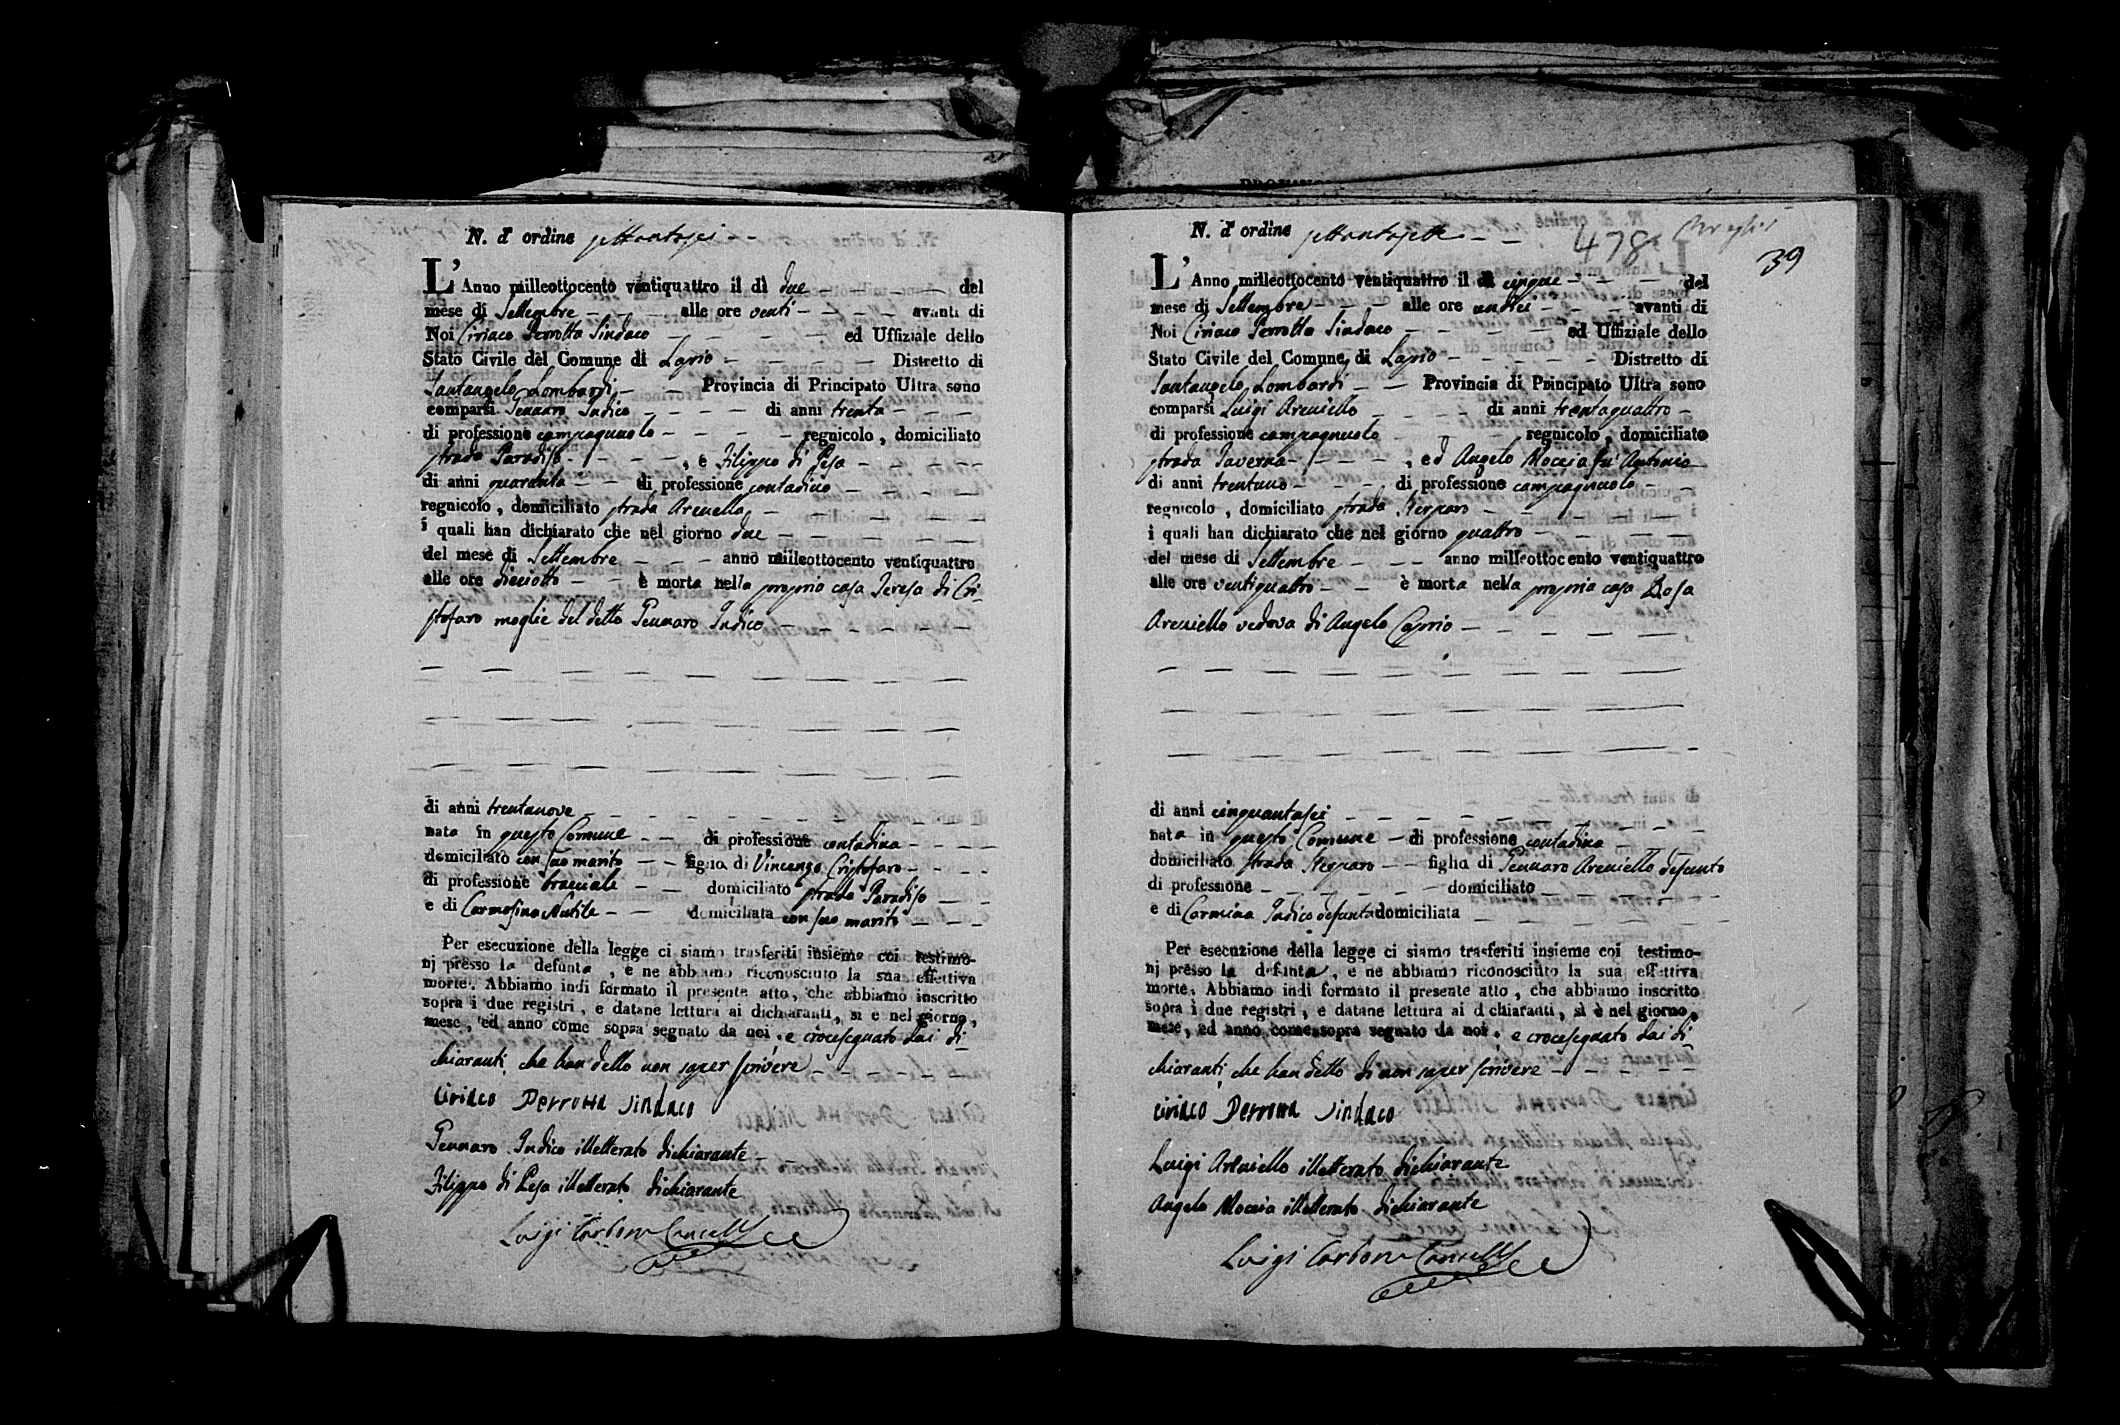 N. d' ordine settantasei
L' Anno milleottocento ventiquattro il dì due del
mese di Settembre alle ore venti avanti di
Noi Ciriaco Perrotta Sindaco ed Uffiziale dello
Stato Civile del Comune di Lapio Distretto di
Santangelo Lombardi Provincia di Principato Ultra sono
comparsi Gennaro Iudico di anni trenta
di professione campagnuolo regnicolo, domiciliato
strada Paradiso, e Filippo di Pesa
di anni quaranta di professione contadino
regnicolo, domiciliato strada Arenella
i quali han dichiarato che nel giorno due
del mese di Settembre anno milleottocento ventiquattro
alle ore dieciotto è morta nella propria casa Teresa di Cri-
stofaro moglie del detto Gennaro Iudico
di anni trentanove
nata in questo Comune di professione contadina
domiciliato con suo marito figlia di Vincenzo Cristofaro
di professione bracciale domiciliato strada Paradiso
e di Carmosina Nutile domiciliata con suo marito
Per esecuzione della legge ci siamo trasferiti insieme coi testimo-
nj presso la defunta, e ne abbiamo riconosciuto la sua effettiva
morte. Abbiamo indi formato il presente atto, che abbiamo inscritto
sopra i due registri, e datane lettura ai dichiaranti, si è nel giorno,
mese, ed anno come sopra segnato da noi, e crocesegnato dai di-
chiaranti, che han detto non saper scrivere
Ciriaco Perrotta Sindaco
Gennaro Iudico illetterato dichiarante
Filippo di Pesa illetterato dichiarante
Luigi Carbone Cancell
N. d' ordine settantasette 478
39
L' Anno milleottocento ventiquattro il dì cinque del
mese di Settembre alle ore undici avanti di
Noi Ciriaco Perrotta Sindaco ed Uffiziale dello
Stato Civile del Comune di Lapio Distretto di
Santangelo Lombardi Provincia di Principato Ultra sono
comparsi Luigi Areniello di anni trentaquattro
di professione campagnuolo regnicolo, domiciliato
strada Taverna, ed Angelo Moccia fu Antonio
di anni trentuno di professione campagnuolo
regnicolo, domiciliato strada
i quali han dichiarato che nel giorno quattro
del mese di Settembre anno milleottocento ventiquattro
alle ore ventiquattro è morta nella propria casa Rosa
Areniello vedova di Angelo Caprio
di anni cinquantasei
nata in questo Comune di professione contadina
domiciliato strada figlia di Gennaro Areniello defunto
di professione domiciliato
e di Carmina Iudico defunta domiciliata
Per esecuzione della legge ci siamo trasferiti insieme coi testimo-
nj presso la defunta, e ne abbiamo riconosciuto la sua effettiva
morte. Abbiamo indi formato il presente atto, che abbiamo inscritto
sopra i due registri, e datane lettura ai dichiaranti, si è nel giorno,
mese, ed anno come sopra segnato da noi, e crocesegnato dai di-
chiaranti, che han detto di non saper scrivere
Ciriaco Perrotta Sindaco
Luigi Areniello illetterato dichiarante
Angelo Moccia illetterato dichiarante
Luigi Carbone Cancell